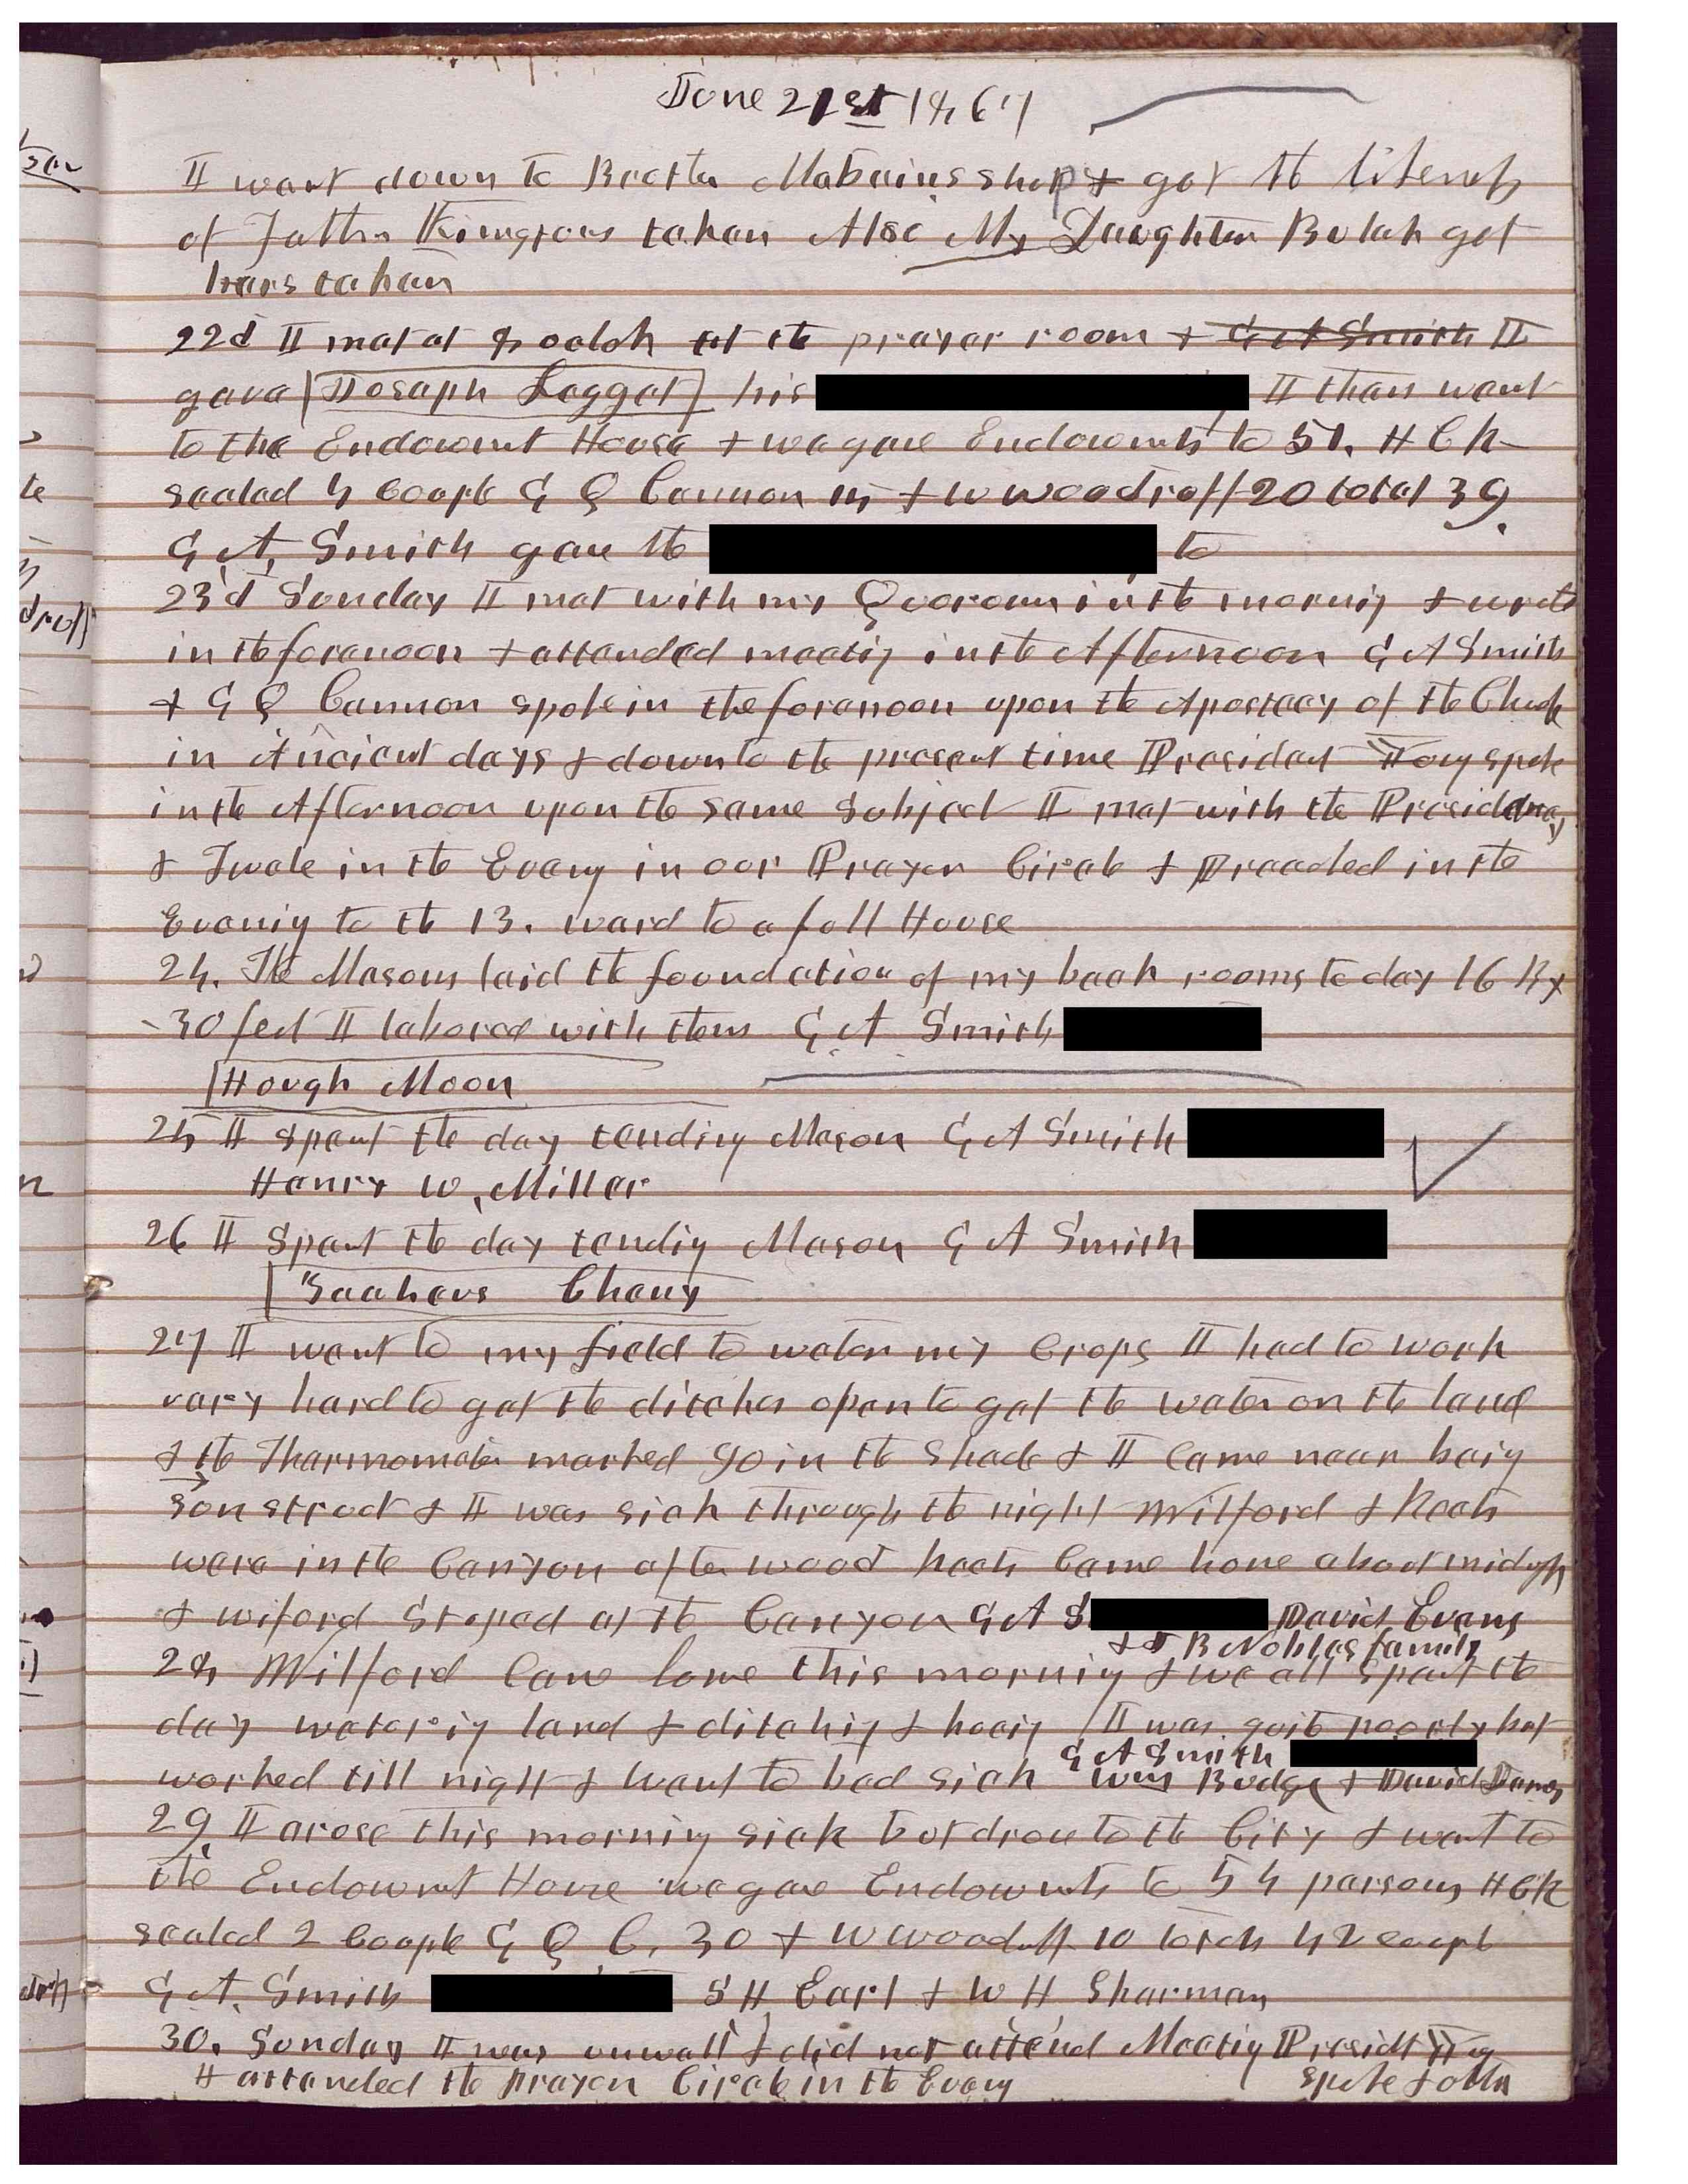 June 21st 1867
I went down to Brother Mabains shop & got the likeness
of Father Kingtons taken Also My Daughter Bulah got
hers taken
22d I met at 8 oclok at the prayer room & G A Smith I
gave Joseph Legget his I then went
to the Endowmt House & we gave Endowmts to 51. H C K
sealed 4 Couple G Q Cannon 15 & W Woodruff 20 total 39
G A, Smith gave the to
23d Sunday I met with my Quoroum in the morning & wrote
in the forenoon & attended meetig in the Afternoon G A Smith
& G Q Cannon spoke in the forenoon upon the Apostacy of the Chuch
in Ancient days & down to the present time President Young spoke
in the Afternoon upon the same subject I met with the Presidency
& Twelve in the Eveng in our Prayer Circle & Preached in the
Evenig to the 13. ward to a full House
24. The Masons laid the foundation of my back rooms to day 16 By
-30 feet I labored with them G A Smith
Hough Moon
25 I spent the day tending Mason G A Smith
Henry W, Miller
26 I spent the day tendig Mason G A Smith
Cheny
27 I went to my field to water my Crops I had to work
very hard to get the ditches open to get the water on the land
& the Thermometer marked 90 in the shade & I came near beig
sun struck & I was sick through the night Wilford &
were in the Canyon after wood came home about midngh
& Wilford Stoped at the Canyon G A S David Evans
& J B Nobles family
28 Wilford Came home this mornig & we all spent the
day waterig land & ditchig & hoeig I was quite poorly but
G A Smith
worked till night & went to bed sick Wm Budge & David James
29 I arose this morning sick but drove to the City & went to
the Endowmt House we gave Endowmts to 54 persons H C K
sealed 2 Couple G Q C. 30 & W Woodruff 10 totals 42 coupl
G A. Smith S H Earl & W H Sharman
30. Sunday I was unwell & did not attend Meetig Presidt Yg
I attended the Prayer Circle in the Eveng spoke &